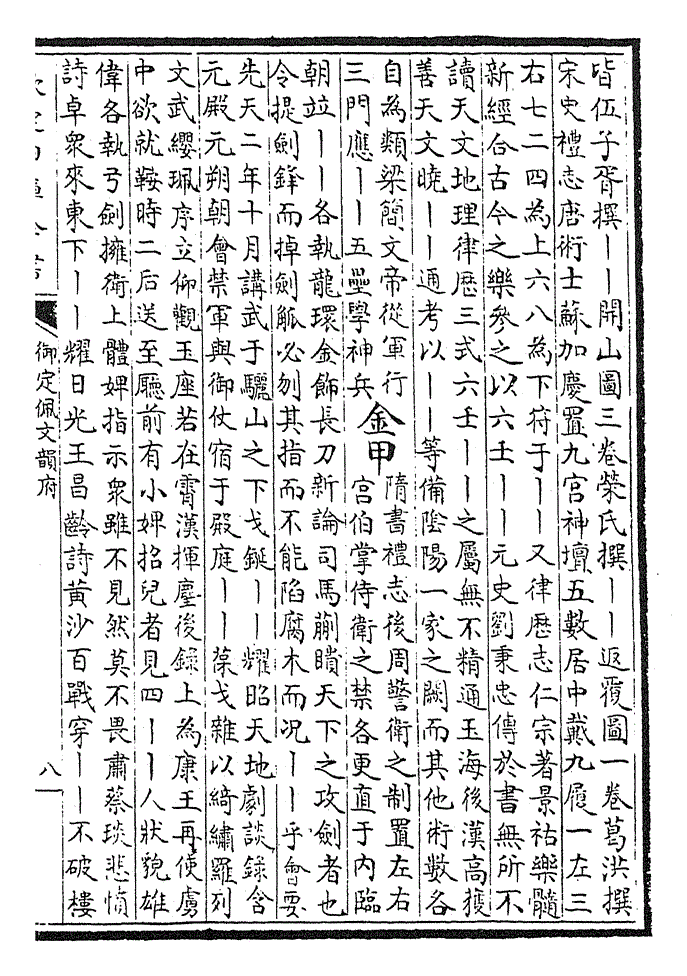 皆伍子胥撰丨丨開山圖三卷榮氏撰丨丨返覆圖一卷葛洪撰
宋史禮志唐術士蘇加慶置九宮神壇五數居中戴九履一左三
右七二四為上六八為下符于丨丨又律歷志仁宗著景祐樂髓
新經合古今之樂參之以六壬丨丨元史劉秉忠傳於書無所不
讀天文地理律歷三式六壬丨丨之屬無不精通玉海後漢高獲
善天文曉丨丨通考以丨丨等備陰陽一家之闕而其他術數各
自為類梁簡文帝從軍行
三門應丨丨五壘學神兵
金甲
隋書禮志後周警衛之制置左右
宮伯掌侍衛之禁各更直于內臨
朝竝丨丨各執龍環金飾長刀新論司馬蒯瞶天下之攻劍者也
令提劍鋒而掉劍觚必刎其指而不能陷腐木而況丨丨乎會要
先天二年十月講武于驪山之下戈鋋丨丨耀昭天地劇談錄含
元殿元朔朝會禁軍與御仗宿于殿庭丨丨葆戈雜以綺繡羅列
文武纓珮序立仰觀玉座若在霄漢揮麈後錄上為康王再使虜
中欲就鞍時二后送至廳前有小婢招兒者見四丨丨人狀貌雄
偉各執弓劍擁衛上體婢指示衆雖不見然莫不畏肅蔡琰悲憤
詩卓衆來東下丨丨耀日光王昌齡詩黃沙百戰穿丨丨不破樓
御定佩文韻府
八